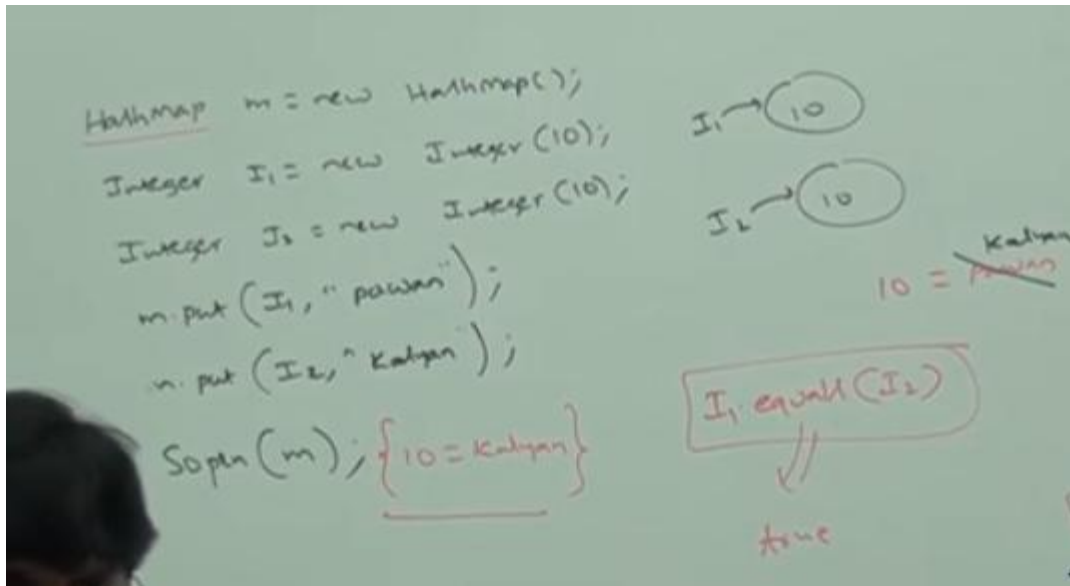 HashMap m = new HashMap();
Integer I1 = new Integer(10);
Integer I2 = new Integer(10);
m.put(I1, "pawan");
m.put(I2, "Kalyan");
Sopln(m); {10=Kalyan}
I1 → 10
I2 → 10
Kalyan
10 = pawan
I1.equals(I2)
true